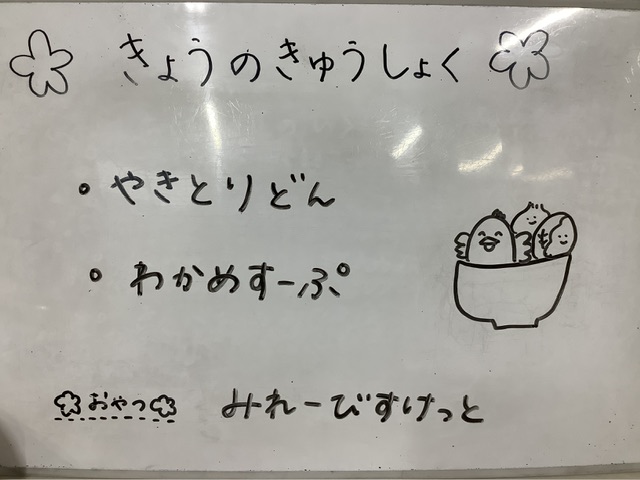 きょうのきゅうしょく
・やきとりどん
・わかめすーぷ
おやつ みれーびすけっと